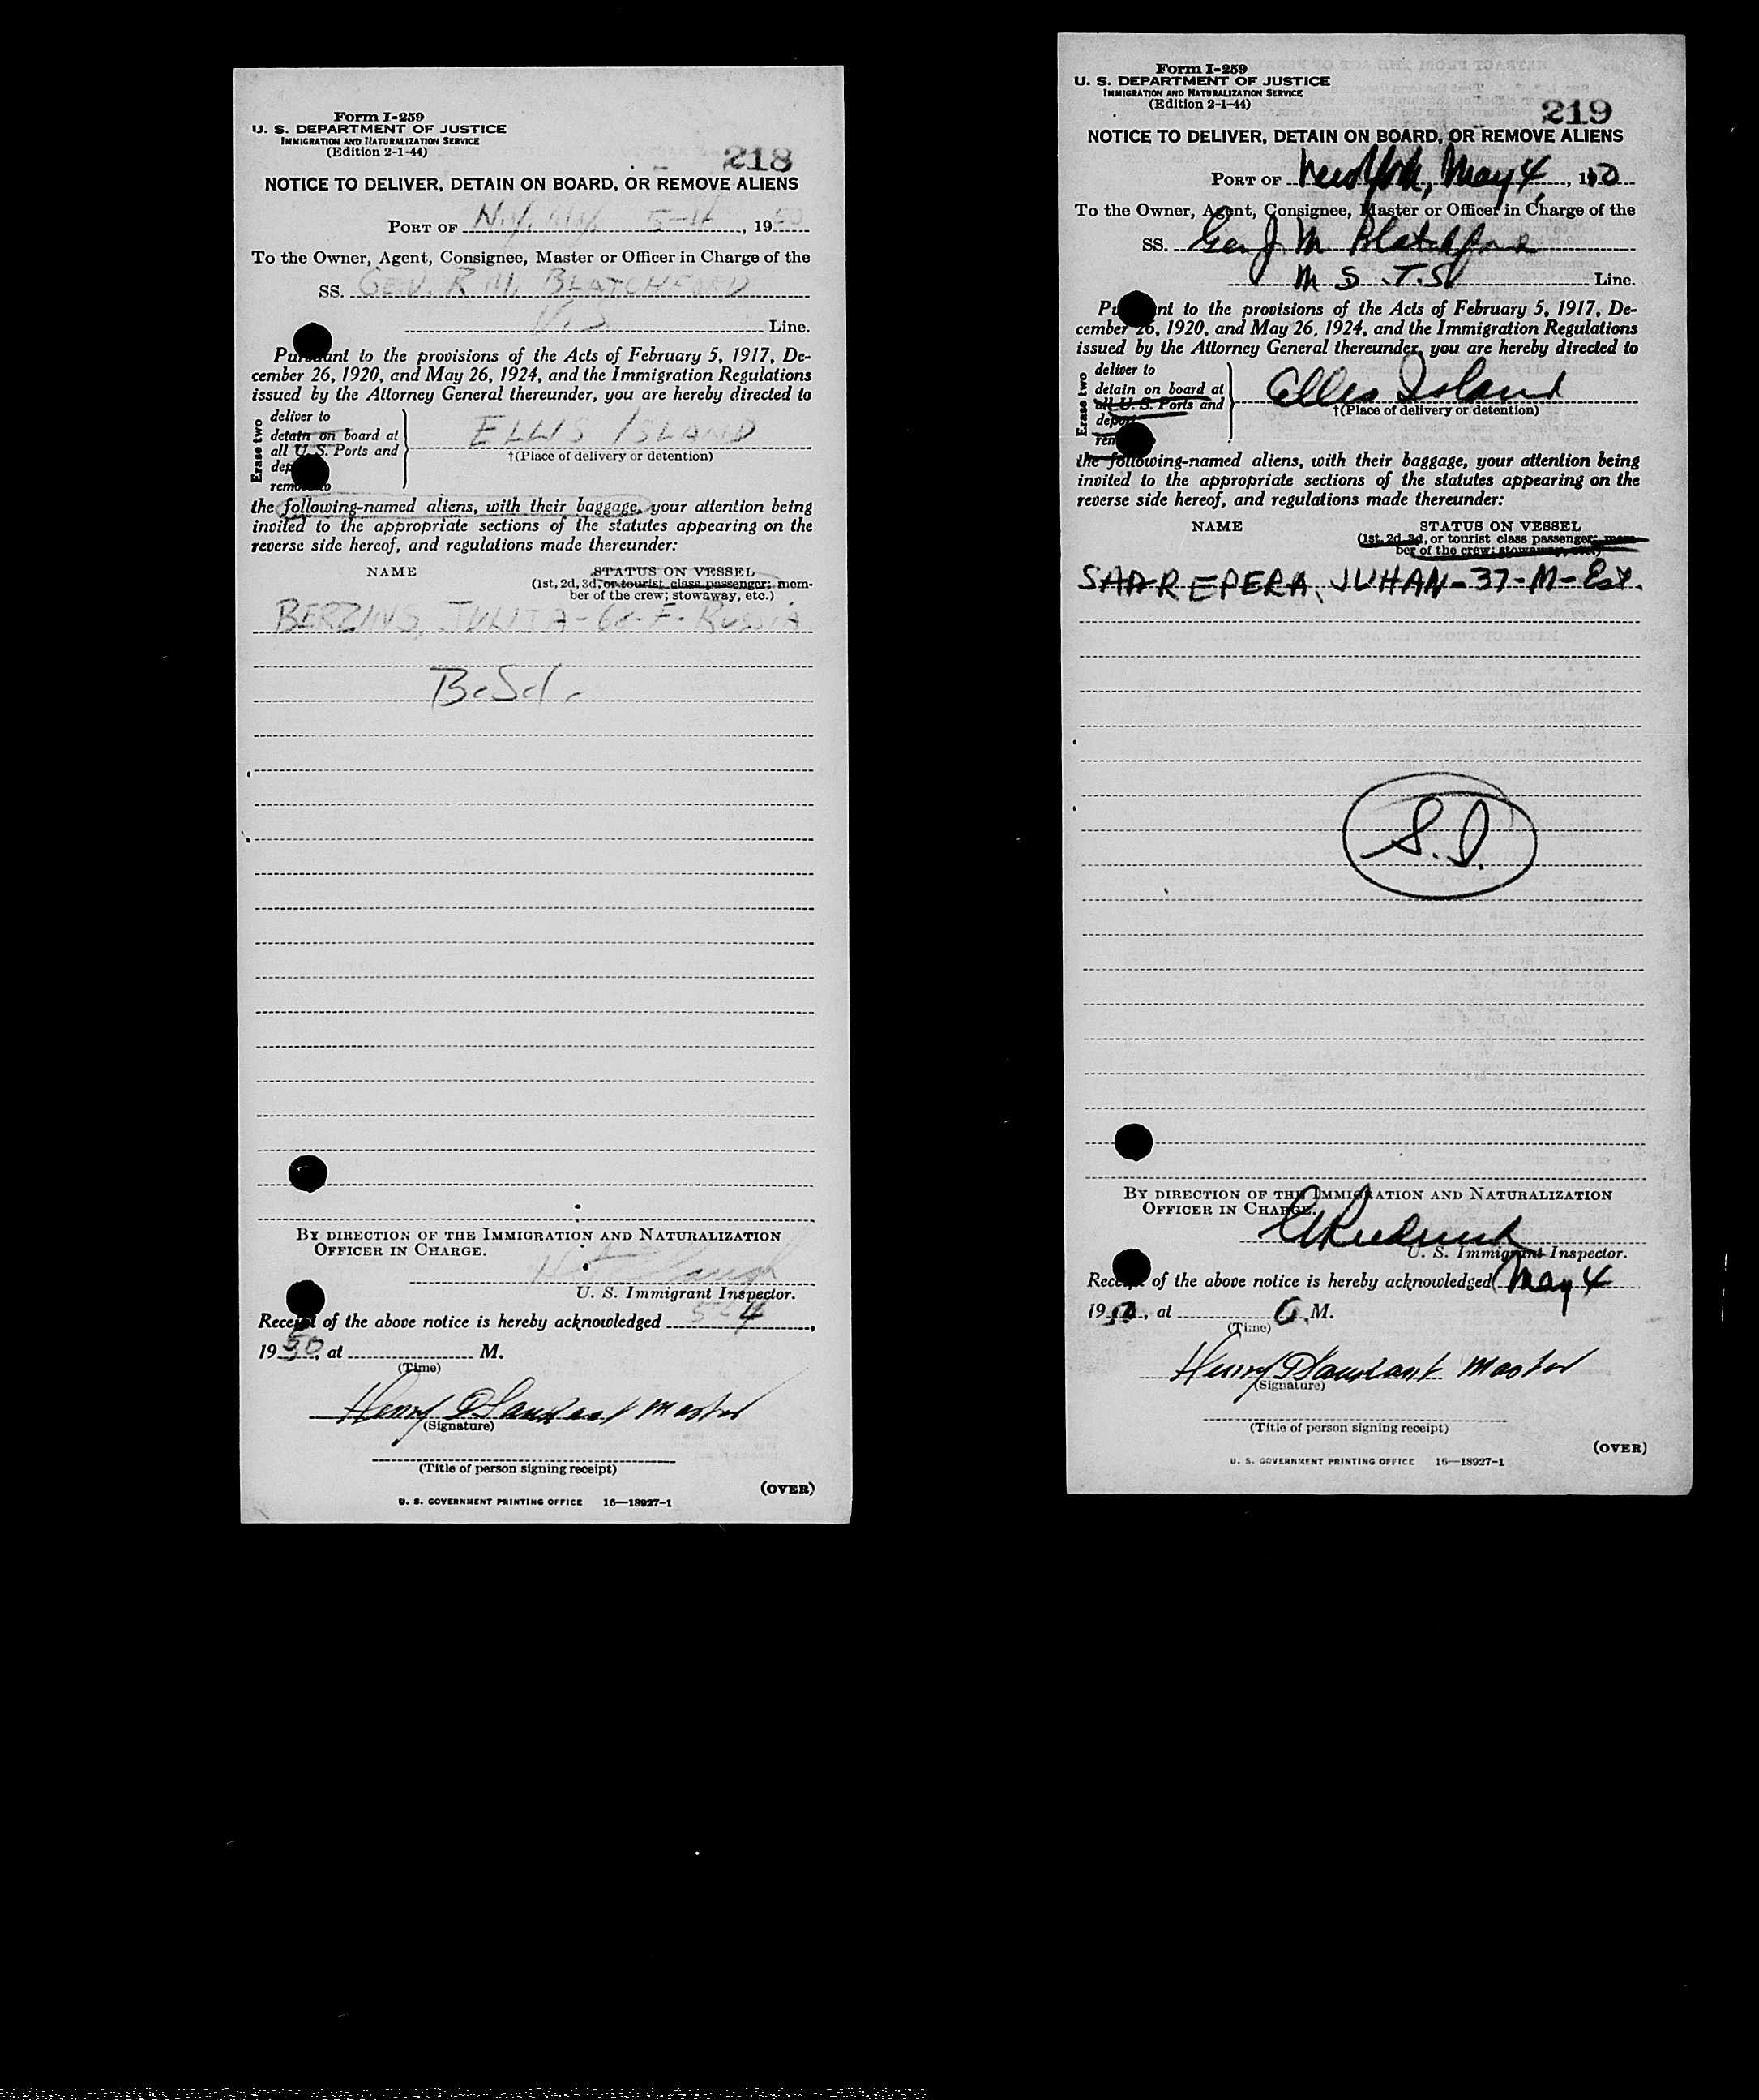 Form I-259
U. S. DEPARTMENT OF JUSTICE
IMMIGRATION AND NATURALIZATION SERVICE
(Edition 2-1-44)
218
NOTICE TO DELIVER, DETAIN ON BOARD, OR REMOVE ALIENS
PORT OF N.Y. 1950
To the Owner, Agent, Consignee, Master or Officer in Charge of the
SS. GEN. R.M. BLATCHFORD
U.S. Line.
Pursuant to the provisions of the Acts of February 5, 1917, De-
cember 26, 1920, and May 26, 1924, and the Immigration Regulations
issued by the Attorney General thereunder, you are hereby directed to
Erase two
deliver to
detain on board at
all U. S. Ports and
dep
remove to
ELLIS ISLAND
†(Place of delivery or detention)
the following-named aliens, with their baggage, your attention being
invited to the appropriate sections of the statutes appearing on the
reverse side hereof, and regulations made thereunder:
NAME STATUS ON VESSEL
(1st, 2d, 3d, or tourist class passenger; mem-
ber of the crew; stowaway, etc.)
BERZINS, JULIJA - 68 - F - RUSSIA
BY DIRECTION OF THE IMMIGRATION AND NATURALIZATION
OFFICER IN CHARGE.
U. S. Immigrant Inspector.
Receipt of the above notice is hereby acknowledged 5-4,
1950, at M.
(Time)
Henry Master
(Signature)
(Title of person signing receipt)
(OVER)
U. S. GOVERNMENT PRINTING OFFICE 16—18927-1
Form I-259
U. S. DEPARTMENT OF JUSTICE
IMMIGRATION AND NATURALIZATION SERVICE
(Edition 2-1-44)
219
NOTICE TO DELIVER, DETAIN ON BOARD, OR REMOVE ALIENS
PORT OF New York, May 4,
To the Owner, Agent, Consignee, Master or Officer in Charge of the
SS. Gen J M Blatchford
M S.T.S Line.
Pu nt to the provisions of the Acts of February 5, 1917, De-
cember 26, 1920, and May 26, 1924, and the Immigration Regulations
issued by the Attorney General thereunder, you are hereby directed to
Erase two
deliver to
detain on board at
all U. S. Ports and
deport
rem
Ellis Island
†(Place of delivery or detention)
the following-named aliens, with their baggage, your attention being
invited to the appropriate sections of the statutes appearing on the
reverse side hereof, and regulations made thereunder:
NAME STATUS ON VESSEL
(1st, 2d, 3d, or tourist class passenger; mem-
ber of the crew; stowaway, etc.)
SAAREPERA, JUHAN - 37 - M - Est.
S.I.
BY DIRECTION OF THE IMMIGRATION AND NATURALIZATION
OFFICER IN CHARGE.
U. S. Immigrant Inspector.
Receipt of the above notice is hereby acknowledged May 4
19 , at M.
(Time)
Henry Master
(Signature)
(Title of person signing receipt)
(OVER)
U. S. GOVERNMENT PRINTING OFFICE 16—18927-1